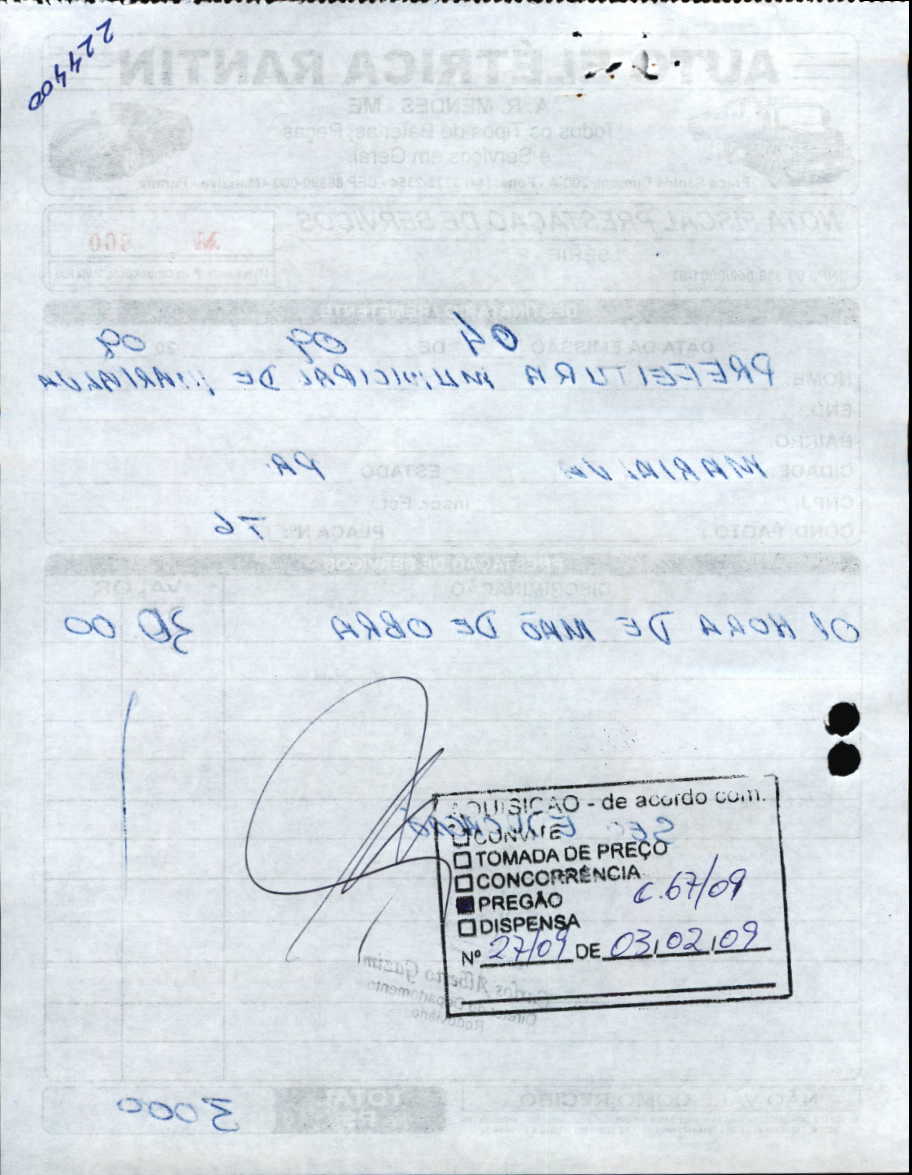 224400
AUTO ELÉTRICA RANTIN
A. R. MENDES - ME
Todos os Tipos de Baterias, Peças
e Serviços em Geral
NOTA FISCAL PRESTAÇÃO DE SERVIÇOS
SÉRIE
DATA DA EMISSÃO 04 DE 09 20 09
NOME: PREFEITURA MUNICIPAL DE MARIALVA
END.:
BAIRRO:
CIDADE: MARIALVA ESTADO: PR.
CNPJ: Inscr. Est.:
COND. PAGTO.: PLACA Nº: T6
PRESTAÇÃO DE SERVIÇOS
DISCRIMINAÇÃO VALOR
01 HORA DE MÃO DE OBRA 30 00
AQUISIÇÃO - de acordo com.
SEC. EDUCAÇÃO
CONVITE
TOMADA DE PREÇO
CONCORRÊNCIA
PREGÃO C.67/09
DISPENSA
Nº 27/09 DE 03/02/09
Carlos Alberto Gazim
Diretor do Departamento
Rodoviário
TOTAL 3000